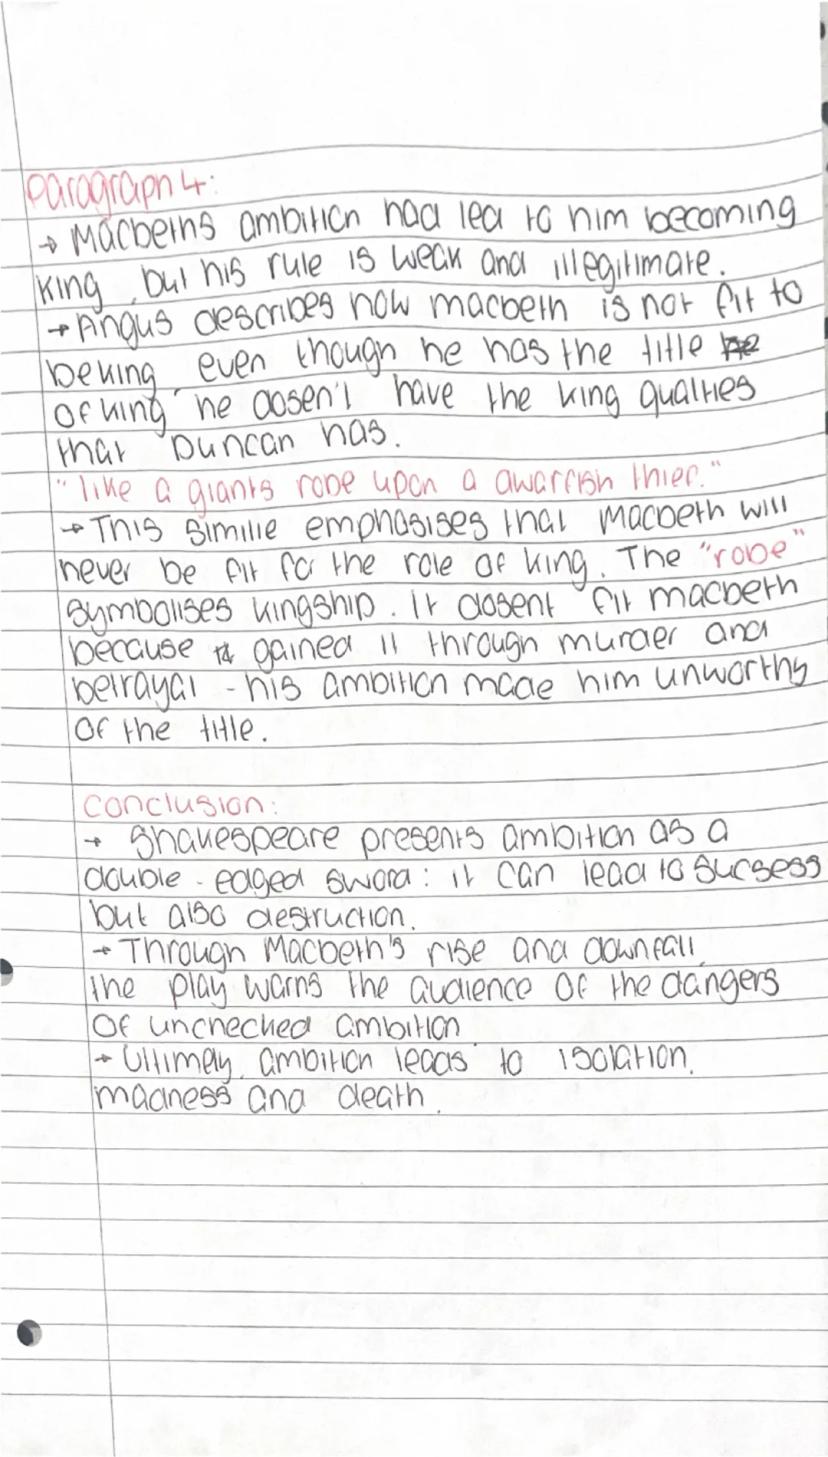 Paragraph 4:
→ Macbeths ambition had lead to him becoming
King, but his rule is weak and illegitimate.
→ Angus describes how macbeth is not fit to
be king, even though he has the title
of king he dosen't have the king qualties
that Duncan has.
"like a giants robe upon a dwarfish thief."
→ This similie emphasises that Macbeth will
never be fit for the role of king. The "robe"
symbolises kingship. It dosent fit macbeth
because gained it through murder and
betrayal - his ambition made him unworthy
of the title.
Conclusion:
→ Shakespeare presents ambition as a
double-edged sword: it can lead to sucsess
but also destruction.
→ Through Macbeth's rise and downfall,
the play warns the audience of the dangers
of unchecked ambition
→ Ultimely, ambition leads to isolation,
madness and death.